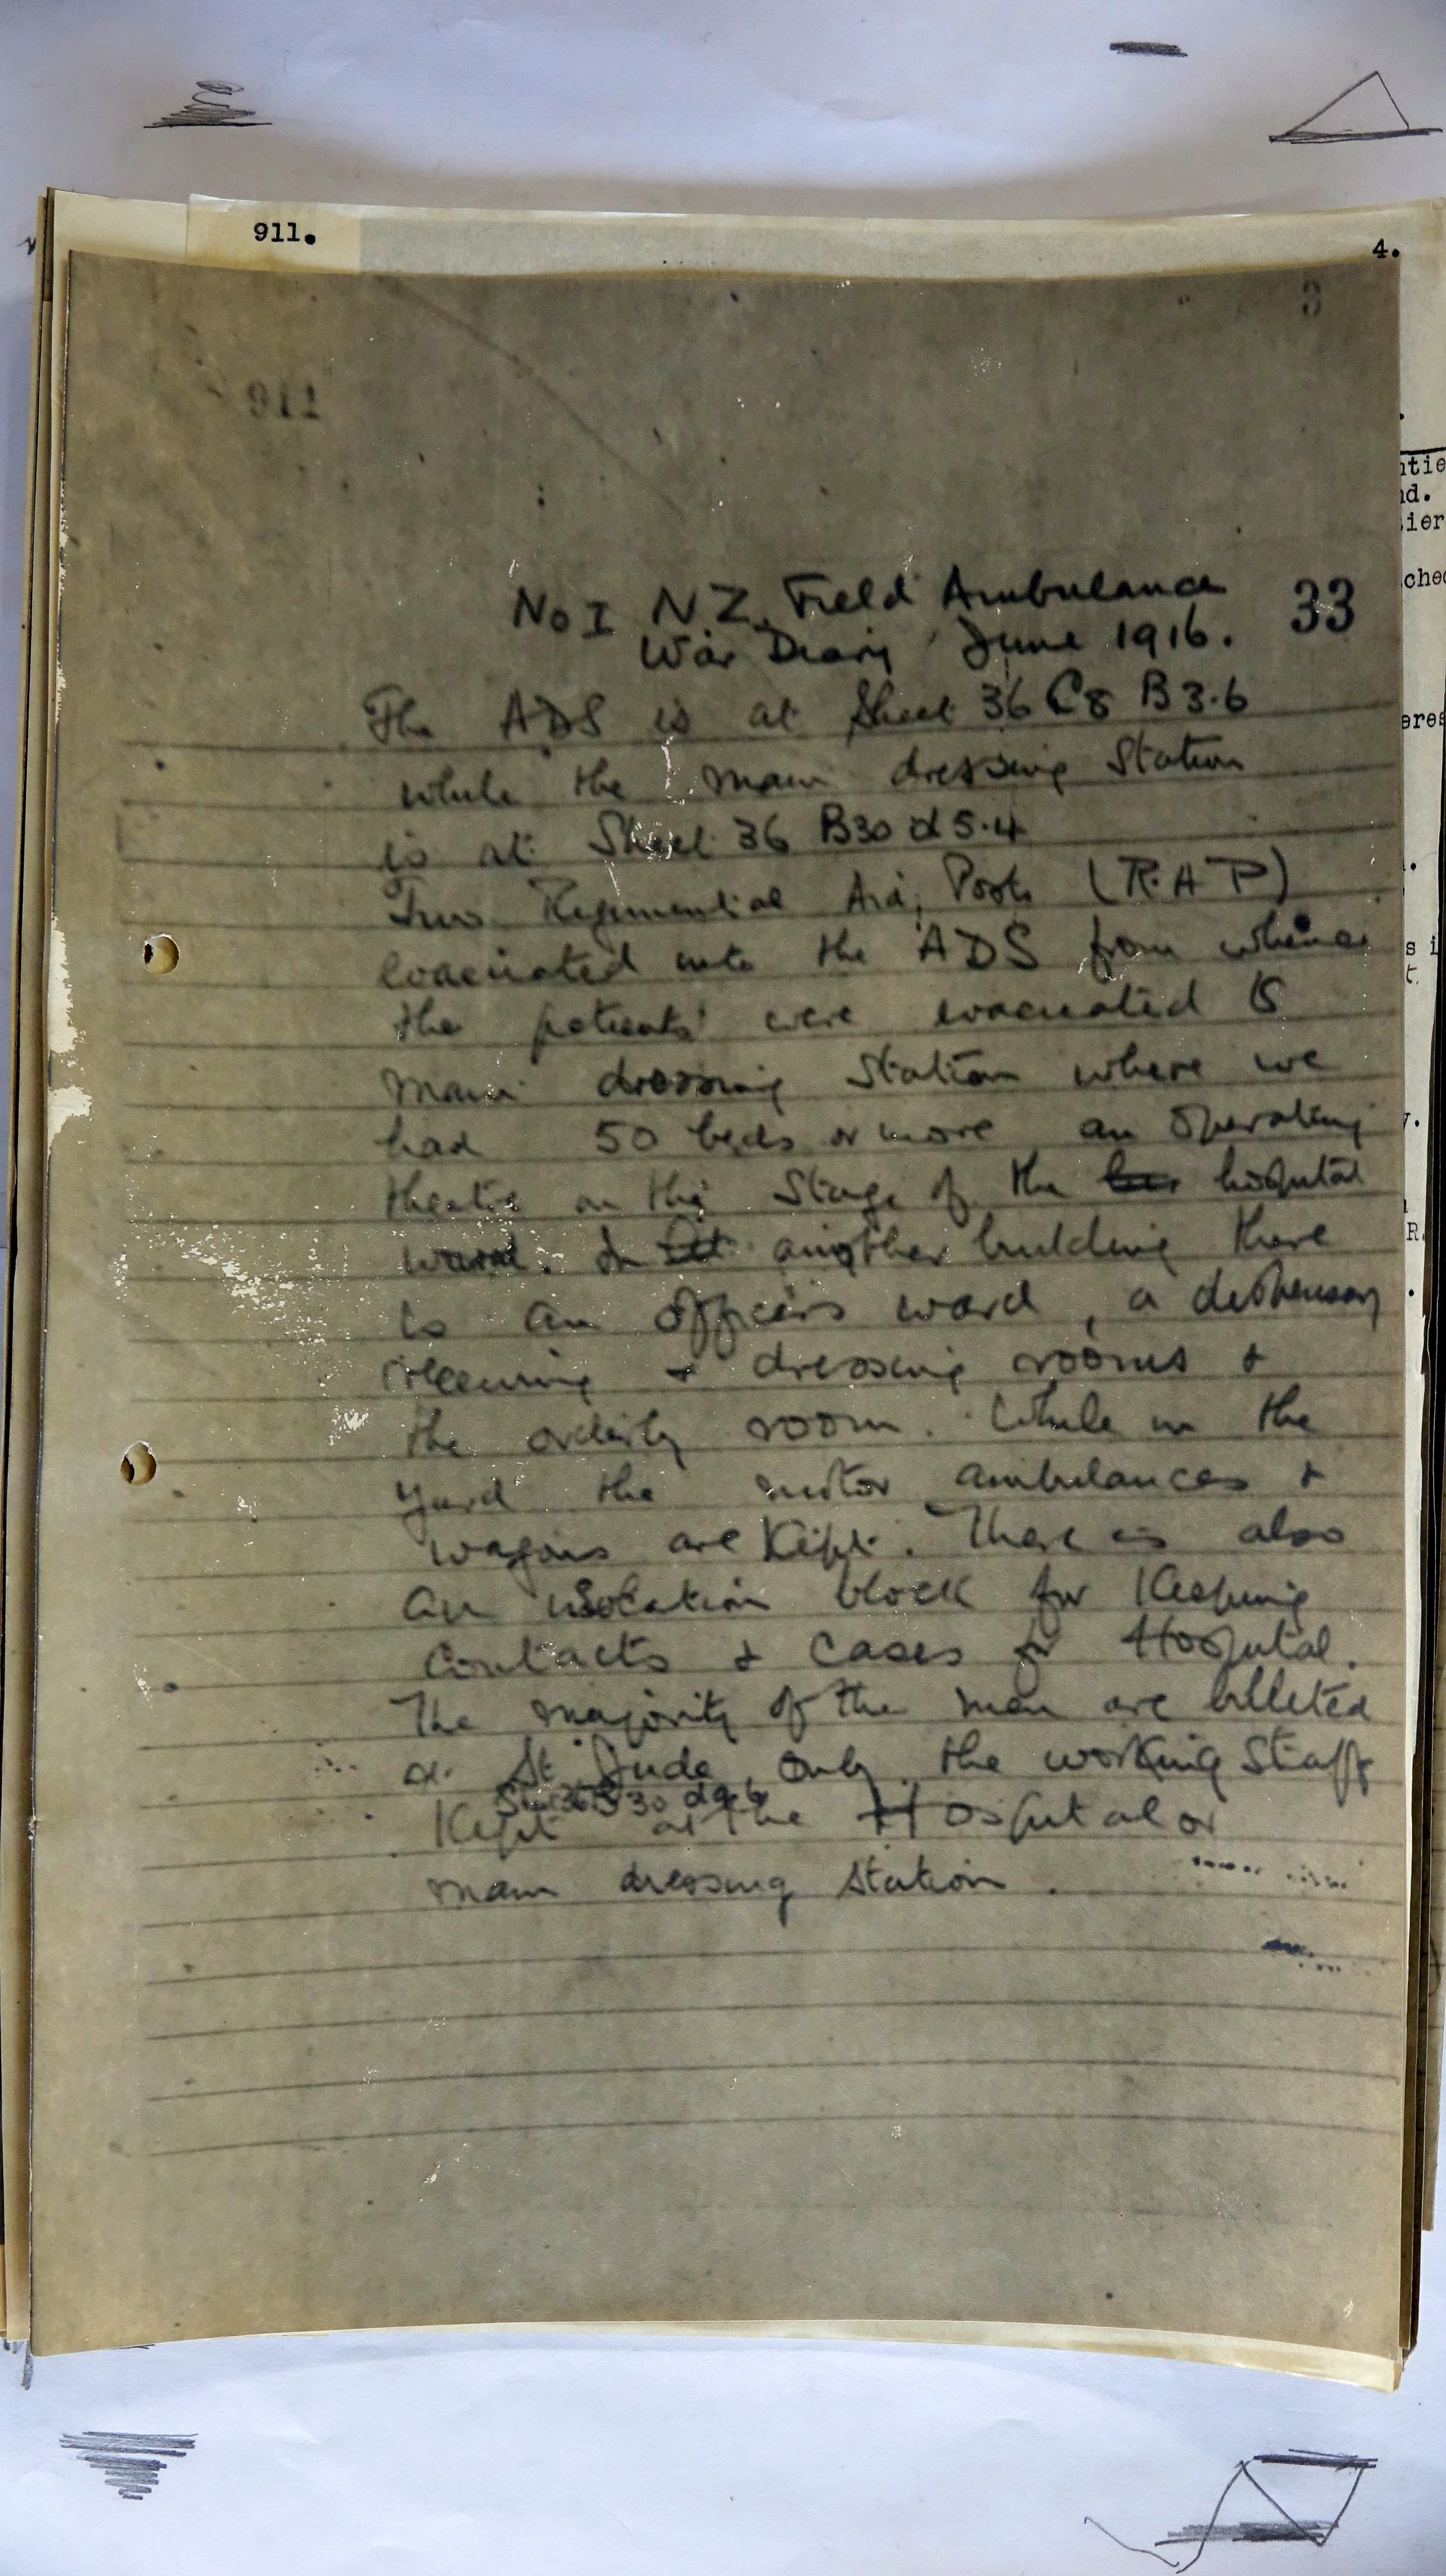 911.
4.
3
911
No I N Z. Field Ambulance 33
War Diary June 1916.
The ADS is at Sheet 36 C8 B 3.6
while the main dressing Station
is at Sheet 36 B30 d 5.4
Two Regimential Aid Posts (R.A P)
evacuated into the ADS from whence
the patients were evacuated to
main dressing Station where we
had 50 beds or more an operating
theatre on the Stage of the hospital
ward. In another building there
is an Officers ward, a dispensary
receiving & dressing rooms &
the orderly room. While in the
yard the motor ambulances &
wagons are Kept. There is also
an isolation block for Keeping
Contacts & Cases for Hospital.
The majority of the men are billeted
at St Jude only the working Staff
36 B 30 d 9.6
Kept at the Hospital or
main dressing station.
ntie
nd.
ier
ched
eres
s i
t
R.